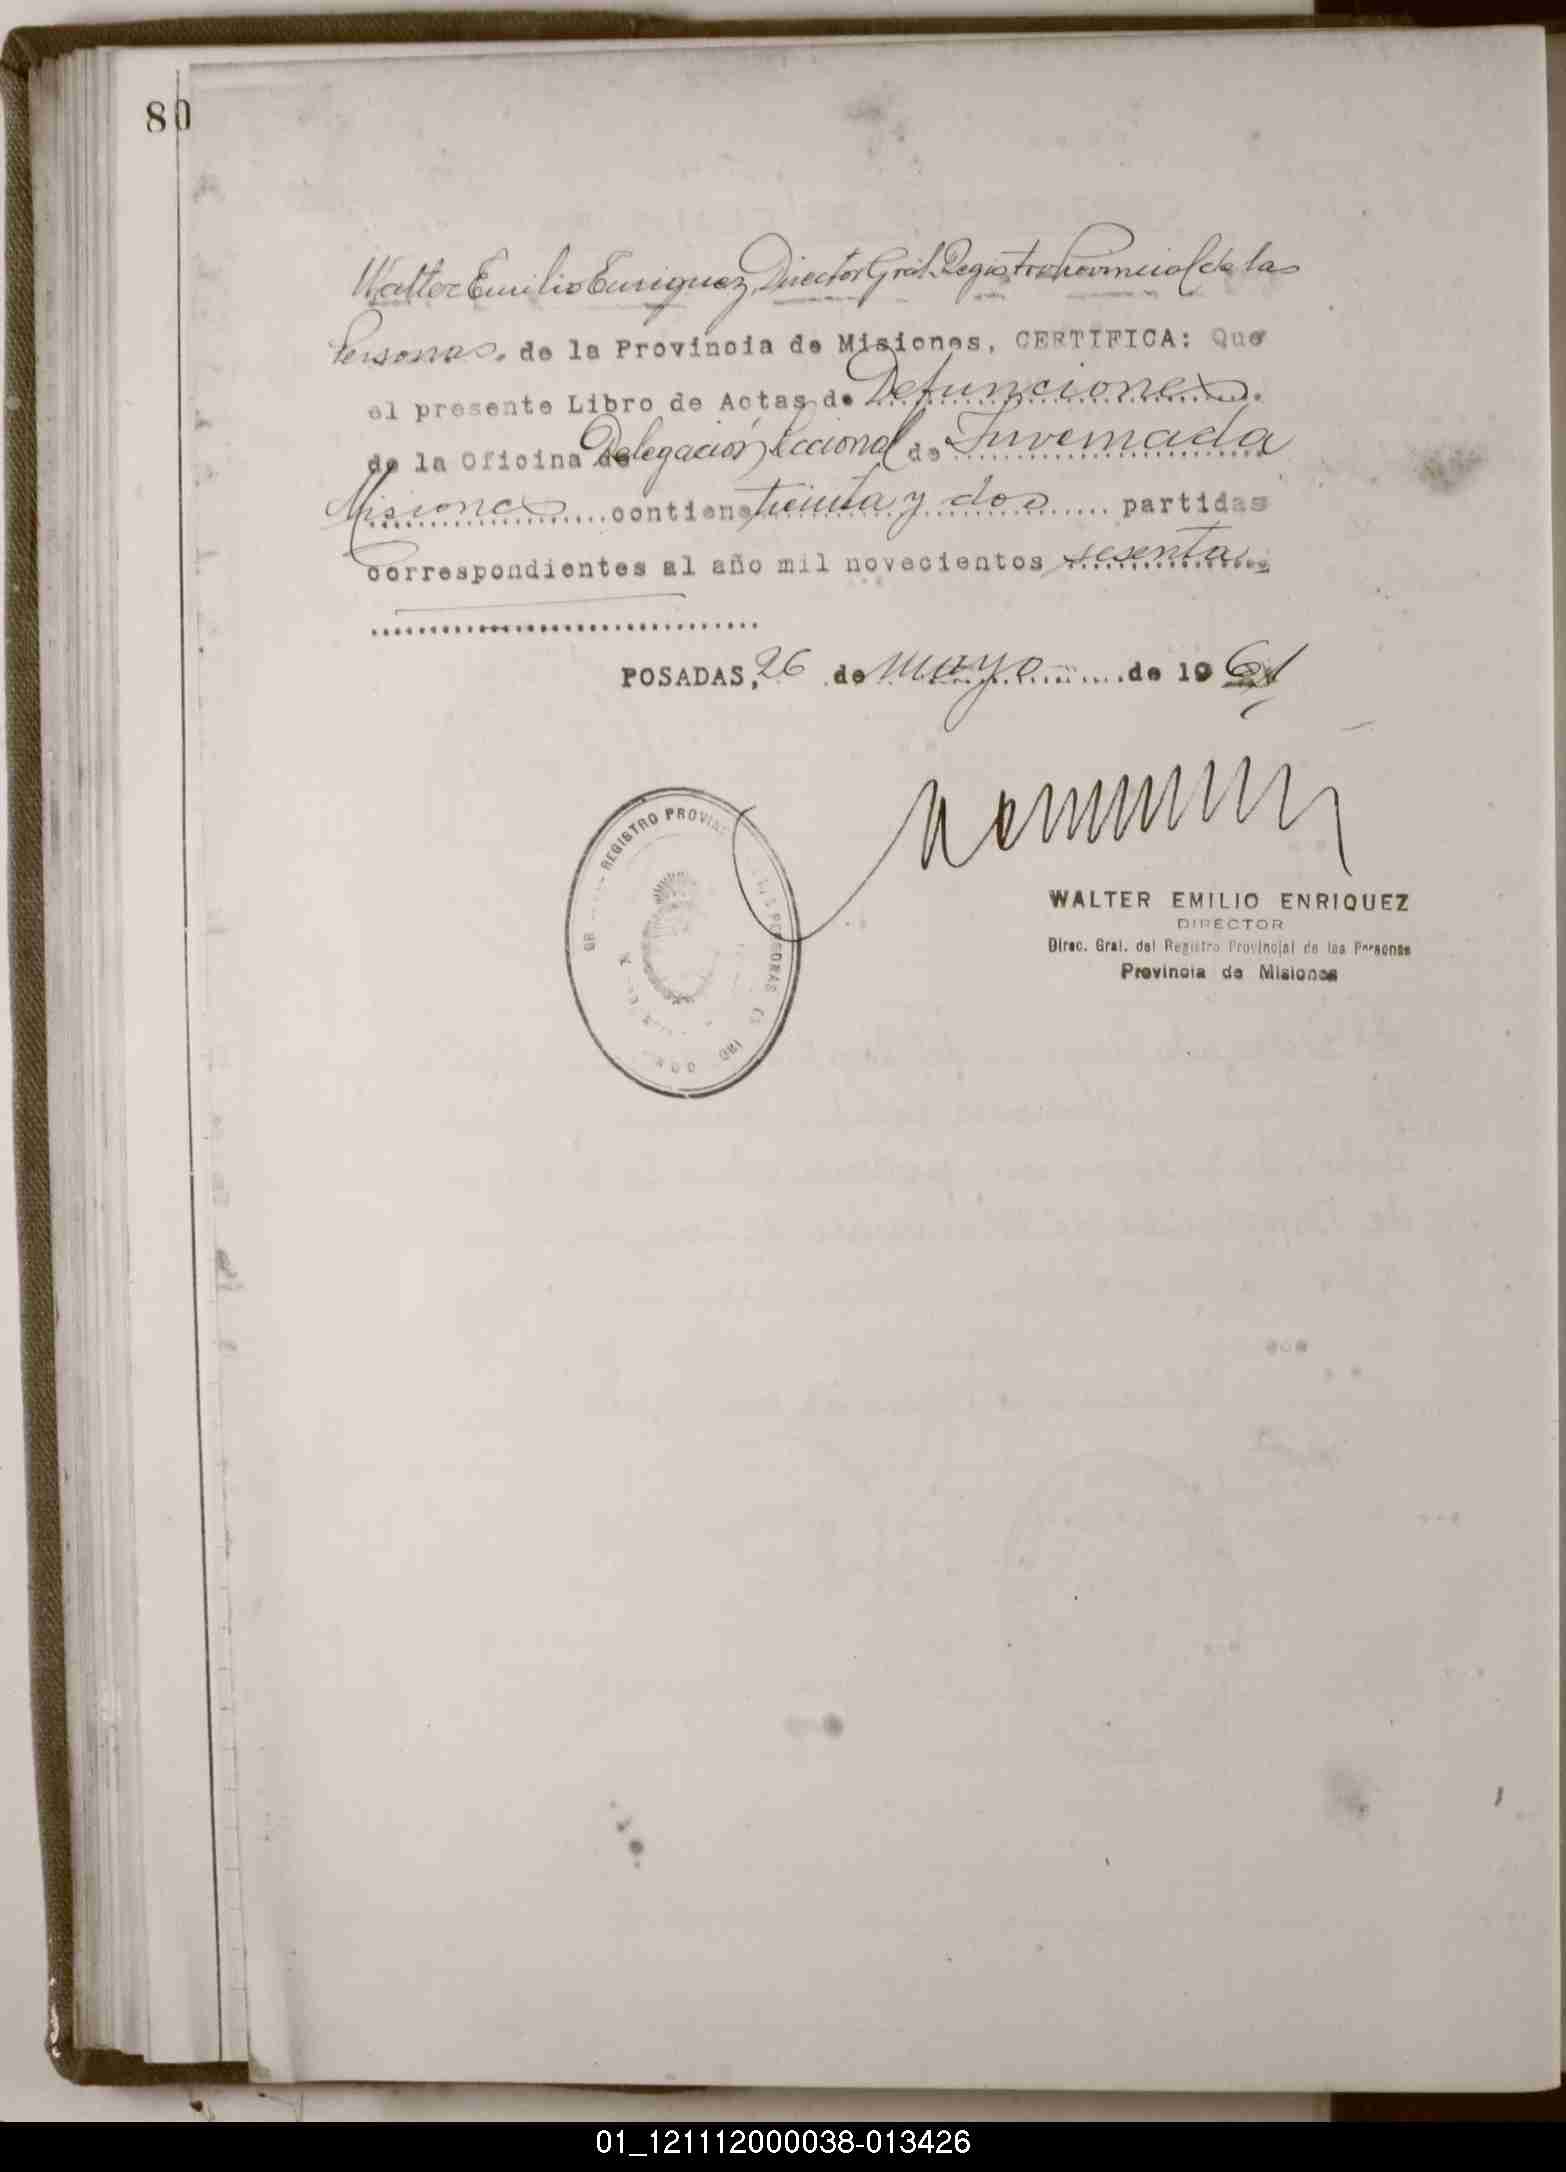 80
Walter Emilio Enriquez, Director Gral. Registro Provincial de las
Personas. de la Provincia de Misiones, CERTIFICA: Que
el presente Libro de Actas de Defunciones.
de la Oficina de Delegación Seccional de Invernada
Misiones contiene treinta y dos partidas
correspondientes al año mil novecientos sesenta.
POSADAS, 26 de Mayo de 1961
REGISTRO PROVINC
PERSONAS
WALTER EMILIO ENRIQUEZ
DIRECTOR
Direc. Gral. del Registro Provincial de las Personas
Provincia de Misiones
01_121112000038-013426